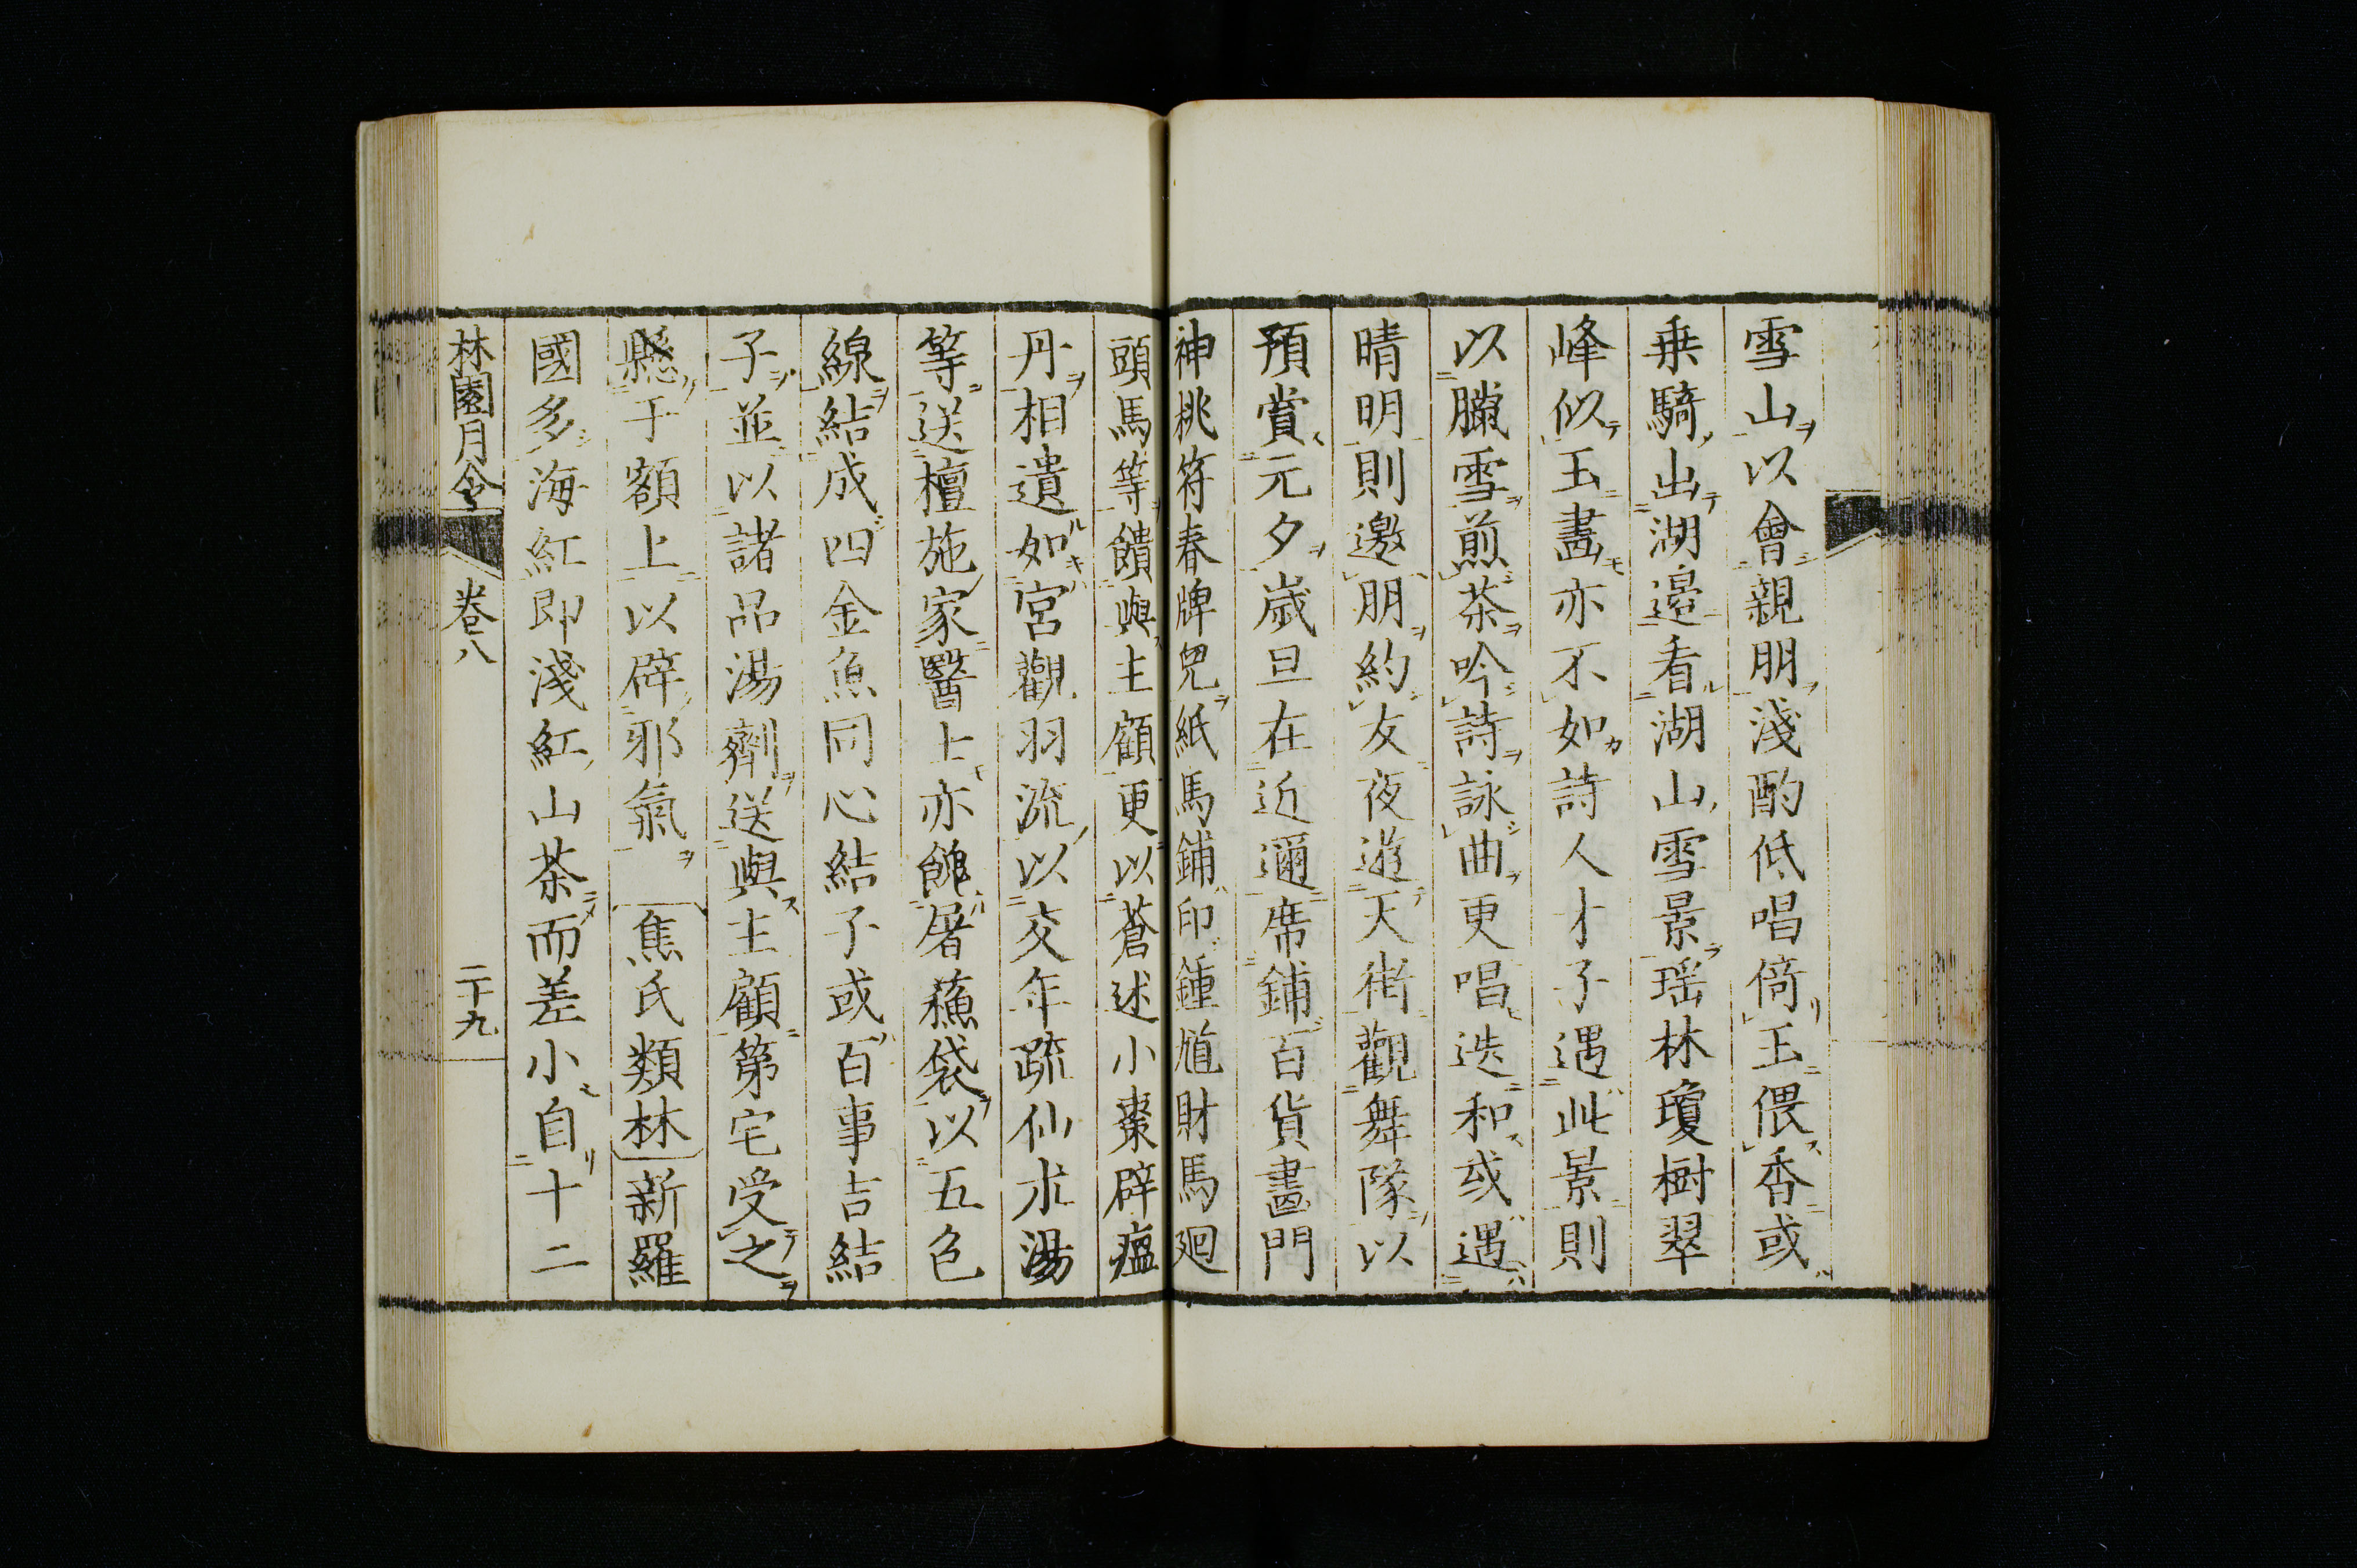 雪山以會親朋淺酌低唱倚玉偎香或
乗騎出湖邉看湖山雪景瑶林瓊樹翠
峰似玉畫亦不如詩人才子遇此景則
以臘雪煎茶吟詩詠曲更唱迭和或遇
晴明則邀朋約友夜遊天街觀舞隊以
預賞元夕歲旦在近邇席鋪百貨畫門
神桃符春牌兒紙馬鋪印鍾馗財馬廻
頭馬等饋與主顧更以蒼述小棗辟瘟
丹相遺如宮觀羽流以交年疏仙朮湯
等送檀施家醫士亦饋屠蘓袋以五色
線結成四金魚同心結子或百事吉結
子並以諸品湯劑送與主顧第宅受之
懸于額上以辟邪氣 焦氏類林 新羅
國多海紅即淺紅山茶而差小自十二
林園月令 卷八 二十九